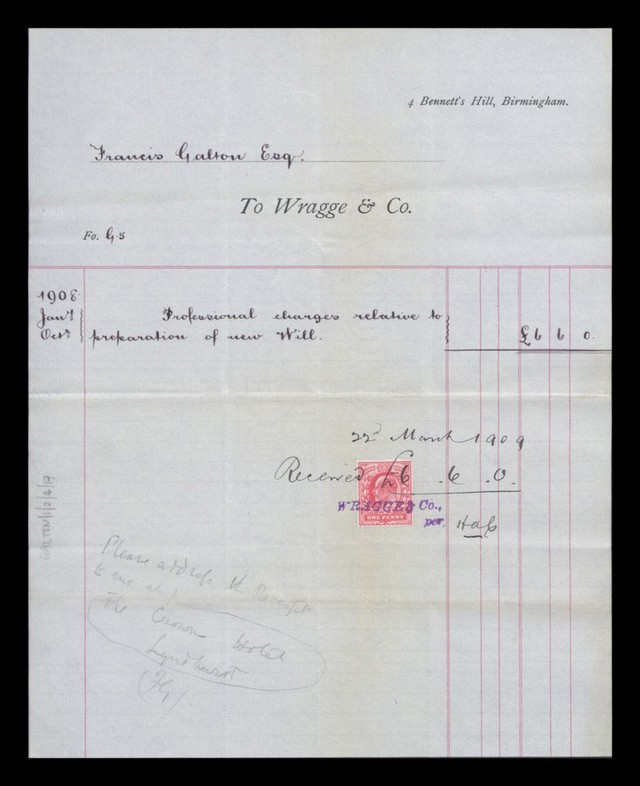 4 Bennett's Hill, Birmingham.
Francis Galton Esq.
To Wragge & Co.
Fo. G 5
1908
Jany
Octr
Professional charges relative to
preparation of new Will.
£6 6 0.
22d March 1909
Received £6 . 6 . 0.
ONE PENNY
WRAGGE & Co.,
per.
Please address the Receipt
to me at
The Crown Hotel
Lyndhurst